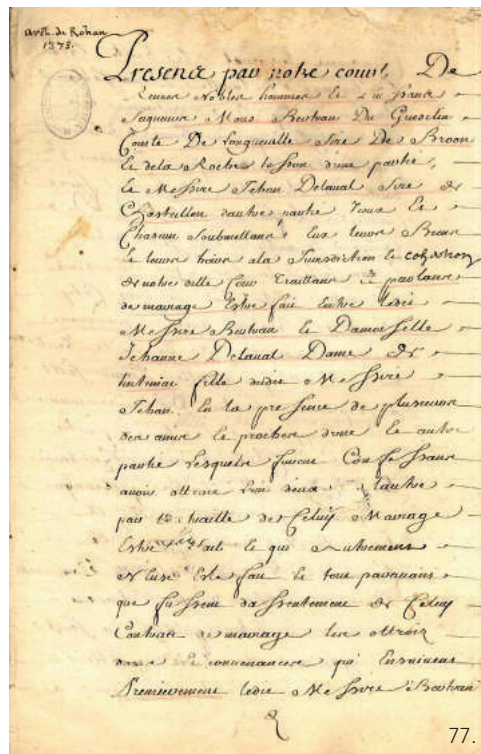 Arch. de Rohan
1373.
Presence par notre court. De
Rennes Nobles hommes et
Seigneurs Mons Bertran Du Guesclin
Comte De Longueville Sire De Broon
Et de la Roche d'une partie,
Et Messire Jehan Delaval Sire de
Chastillon dautre partie Tous Et
Chacun Soubmettans Eux leurs Biens
Et leurs hoirs a la Jurisdiction Et cohertion
de notre ditte Cour Traittans Et parlans
de mariage Estre fait Entre ledit
Messire Bertran Et Damoiselle
Jehanne Delaval Dame de
tinteniac fille dudit Messire
Jehan. En la presence de plusieurs
des amis Et prochess d'une Et autre
partie Lesquels furent Confessans
avoir ottroié L'un à lautre
par la de Celuy Mariage
Estre fait Et qui Autrement
N'eust Esté fait Et tous
que de Celuy
Contract de mariage Les ottrois
dons Et convenances qui Ensuivent
Premierement ledit Messire Bertran
77.